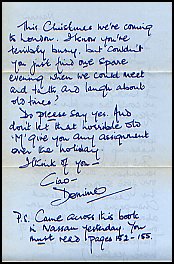 This Christmas we're coming
to London. I know you're
terribly busy, but couldn't
you just find one spare
evening when we could meet
and talk and laugh about
old times?
Do please say yes. And
don't let that horrible old
'M' give you any assignment
over the holiday.
I think of you –
Ciao –
Domino
P.S. Came across this book
in Nassau yesterday. You
must read pages 152-155.